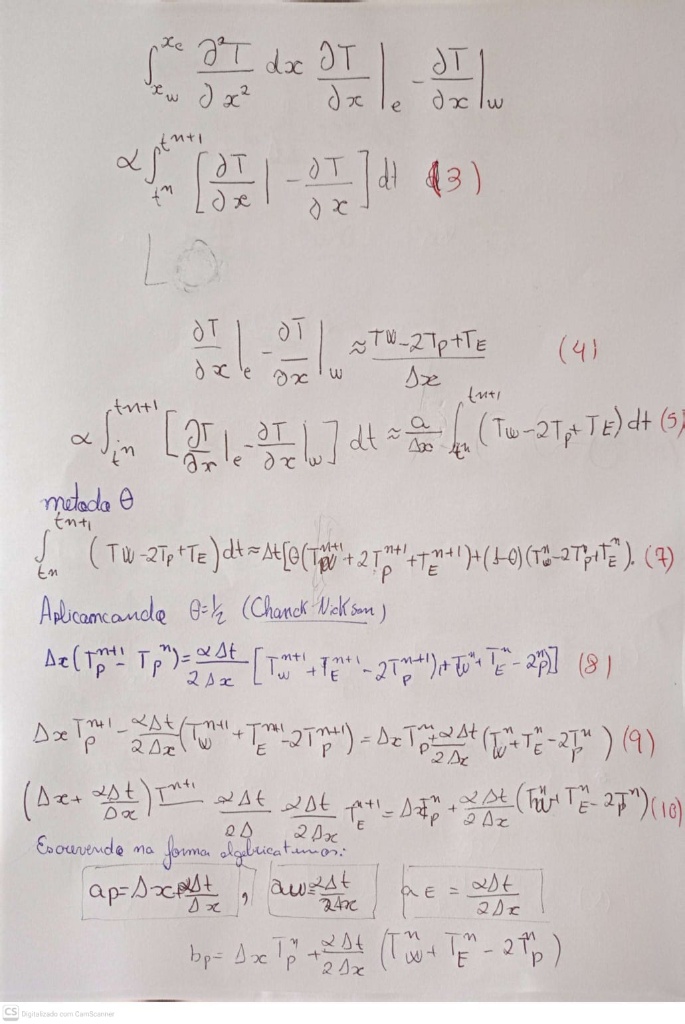 ∫_{x_w}^{x_e} ∂²T/∂x² dx ∂T/∂x|_e - ∂T/∂x|_w
α∫_{t^n}^{t^{n+1}} [∂T/∂x| - ∂T/∂x] dt (3)
∂T/∂x|_e - ∂T/∂x|_w ≈ (T_W - 2T_P + T_E)/Δx (4)
α∫_{t^n}^{t^{n+1}} [∂T/∂x|_e - ∂T/∂x|_w] dt ≈ a/Δx ∫_{t^n}^{t^{n+1}} (T_W - 2T_P + T_E) dt (5)
metodo θ
∫_{t_n}^{t^{n+1}} (T_W - 2T_P + T_E) dt ≈ Δt[θ(T_W^{n+1} + 2T_P^{n+1} + T_E^{n+1}) + (1-θ)(T_W^n - 2T_P^n + T_E^n). (7)
Aplicamcando θ=1/2 (Chanck Nickson)
Δx(T_P^{n+1} - T_P^n) = αΔt/2Δx [T_W^{n+1} + T_E^{n+1} - 2T_P^{n+1}) + T_W^n + T_E^n - 2_P^n)] (8)
Δx T_P^{n+1} - αΔt/2Δx (T_W^{n+1} + T_E^{n+1} - 2T_P^{n+1}) = Δx T_P^n + αΔt/2Δx (T_W^n + T_E^n - 2T_P^n) (9)
(Δx + αΔt/Δx) T^{n+1} — αΔt/2Δ αΔt/2Δx T_E^{n+1} = Δx T_P^n + αΔt/2Δx (T_W^n + T_E^n - 2T_P^n) (10)
Escrevendo na forma algebrica temos:
ap = Δx + αΔt/Δx , aw = αΔt/2Δx aE = αΔt/2Δx
bp = Δx T_P^n + αΔt/2Δx (T_W^n + T_E^n - 2T_P^n)
CS Digitalizado com CamScanner